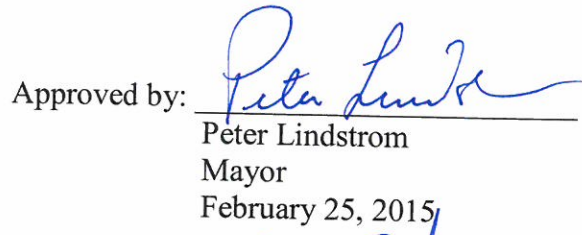 Approved by: Peter Lindstrom
Peter Lindstrom
Mayor
February 25, 2015